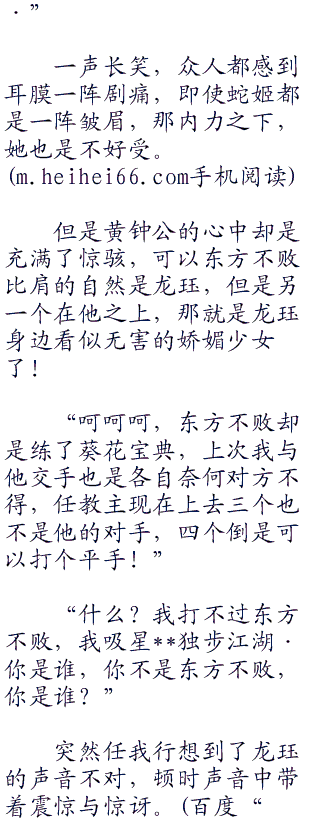 ·”
一声长笑，众人都感到
耳膜一阵剧痛，即使蛇姬都
是一阵皱眉，那内力之下，
她也是不好受。
(m.heihei66.com手机阅读)
但是黄钟公的心中却是
充满了惊骇，可以东方不败
比肩的自然是龙珏，但是另
一个在他之上，那就是龙珏
身边看似无害的娇媚少女
了！
“呵呵呵，东方不败却
是练了葵花宝典，上次我与
他交手也是各自奈何对方不
得，任教主现在上去三个也
不是他的对手，四个倒是可
以打个平手！”
“什么？我打不过东方
不败，我吸星**独步江湖·
你是谁，你不是东方不败，
你是谁？”
突然任我行想到了龙珏
的声音不对，顿时声音中带
着震惊与惊讶。(百度“